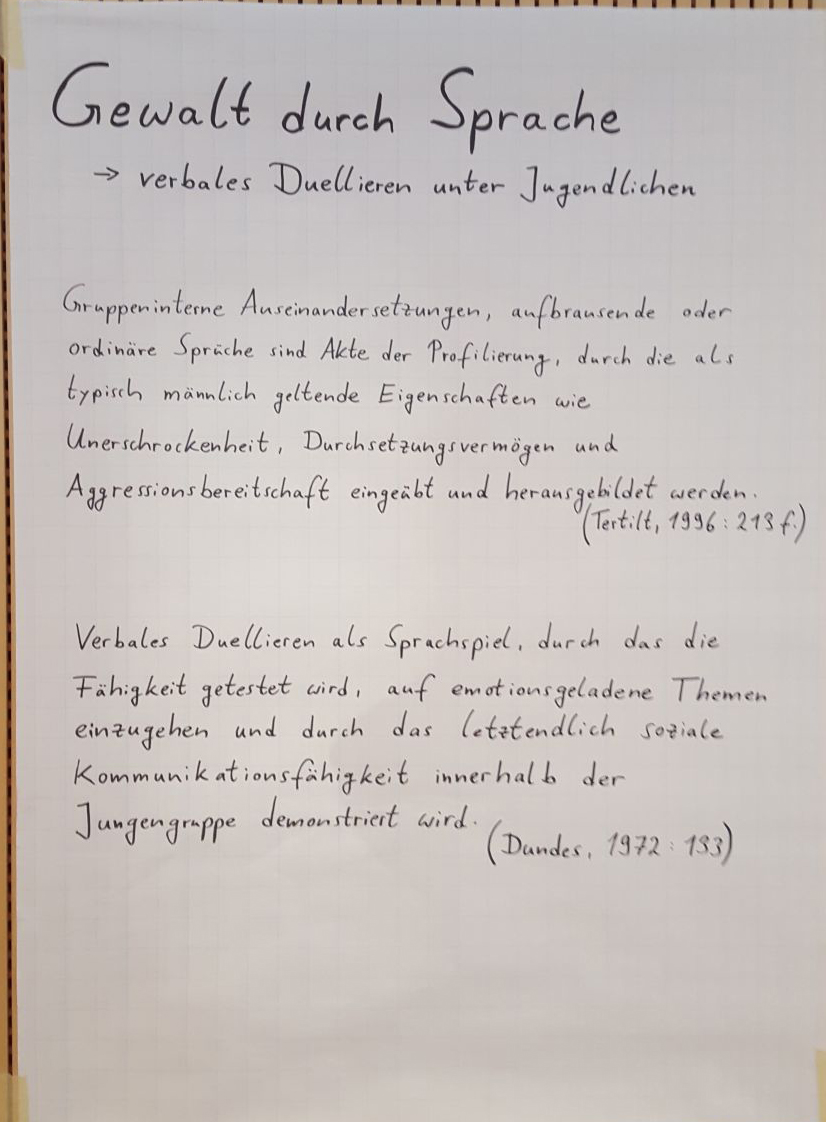 Gewalt durch Sprache
→ verbales Duellieren unter Jugendlichen
Gruppeninterne Auseinandersetzungen, aufbrausende oder
ordinäre Sprüche sind Akte der Profilierung, durch die als
typisch männlich geltende Eigenschaften wie
Unerschrockenheit, Durchsetzungsvermögen und
Aggressionsbereitschaft eingeübt und herausgebildet werden.
(Tertilt, 1996: 213 f.)
Verbales Duellieren als Sprachspiel, durch das die
Fähigkeit getestet wird, auf emotionsgeladene Themen
einzugehen und durch das letztendlich soziale
Kommunikationsfähigkeit innerhalb der
Jungengruppe demonstriert wird.
(Dundes, 1972: 133)